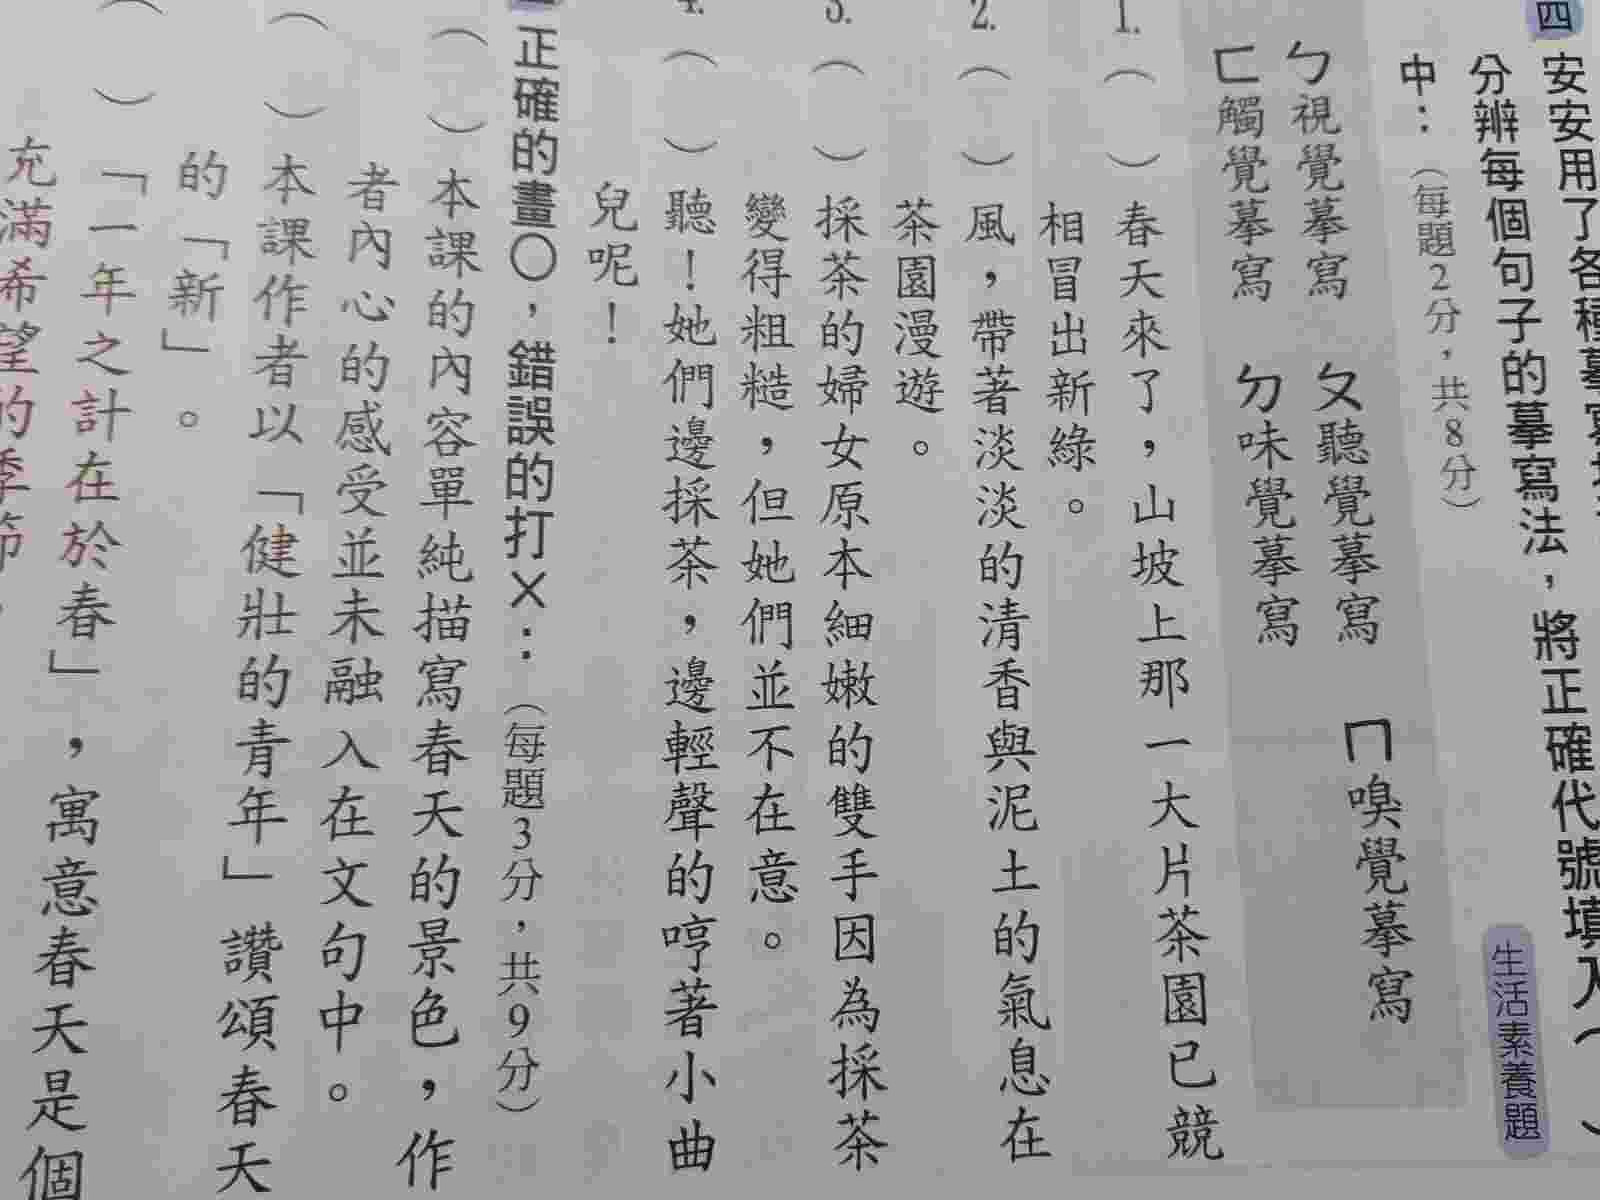 四 安安用了各種摹寫
分辨每個句子的摹寫法，將正確代號填入（ ）
中：（每題2分，共8分）
生活素養題
ㄅ視覺摹寫 ㄆ聽覺摹寫 ㄇ嗅覺摹寫
ㄈ觸覺摹寫 ㄉ味覺摹寫
1.（ ）春天來了，山坡上那一大片茶園已競
相冒出新綠。
2.（ ）風，帶著淡淡的清香與泥土的氣息在
茶園漫遊。
3.（ ）採茶的婦女原本細嫩的雙手因為採茶
變得粗糙，但她們並不在意。
4.（ ）聽！她們邊採茶，邊輕聲的哼著小曲
兒呢！
正確的畫〇，錯誤的打×：（每題3分，共9分）
（ ）本課的內容單純描寫春天的景色，作
者內心的感受並未融入在文句中。
（ ）本課作者以「健壯的青年」讚頌春天
的「新」。
（ ）「一年之計在於春」，寓意春天是個
充滿希望的季節。